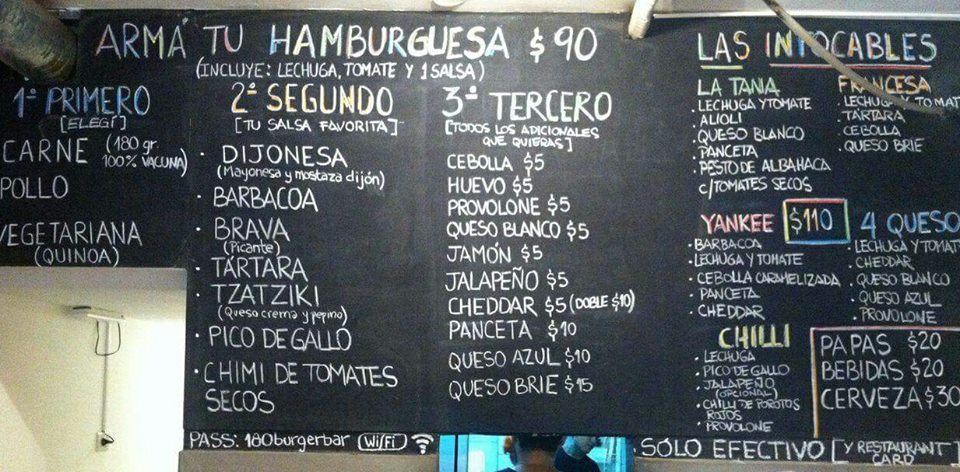 ARMÁ TU HAMBURGUESA $90
(INCLUYE: LECHUGA, TOMATE Y 1 SALSA)
1º PRIMERO
[ELEGÍ]
CARNE (180 gr. 100% VACUNA)
POLLO
VEGETARIANA
(QUINOA)
2º SEGUNDO
[TU SALSA FAVORITA]
· DIJONESA
(Mayonesa y mostaza dijón)
· BARBACOA
· BRAVA
(Picante)
· TÁRTARA
· TZATZIKI
(Queso crema y pepino)
· PICO DE GALLO
· CHIMI DE TOMATES
SECOS
3º TERCERO
[TODOS LOS ADICIONALES
QUE QUIERAS]
CEBOLLA $5
HUEVO $5
PROVOLONE $5
QUESO BLANCO $5
JAMÓN $5
JALAPEÑO $5
CHEDDAR $5 (DOBLE $10)
PANCETA $10
QUESO AZUL $10
QUESO BRIE $15
LAS INTOCABLES
LA TANA
· LECHUGA Y TOMATE
ALIOLI
· QUESO BLANCO
· PANCETA
· PESTO DE ALBAHACA
C/TOMATES SECOS
FRANCESA
· LECHUGA Y TOMAT
· TÁRTARA
· CEBOLLA
· QUESO BRIE
YANKEE
$110
· BARBACOA
· LECHUGA Y TOMATE
· CEBOLLA CARAMELIZADA
· PANCETA
· CHEDDAR
4 QUESO
· LECHUGA Y TOMAT
· CHEDDAR
· QUESO BLANCO
· QUESO AZUL
· PROVOLONE
CHILLI
· LECHUGA
· PICO DE GALLO
· JALAPEÑO
(OPCIONAL)
· CHILLI DE POROTOS
ROJOS
· PROVOLONE
PAPAS $20
BEBIDAS $20
CERVEZA $30
PASS: 180burgerbar (WiFi)
· SÓLO EFECTIVO [Y RESTAURANT
CARD